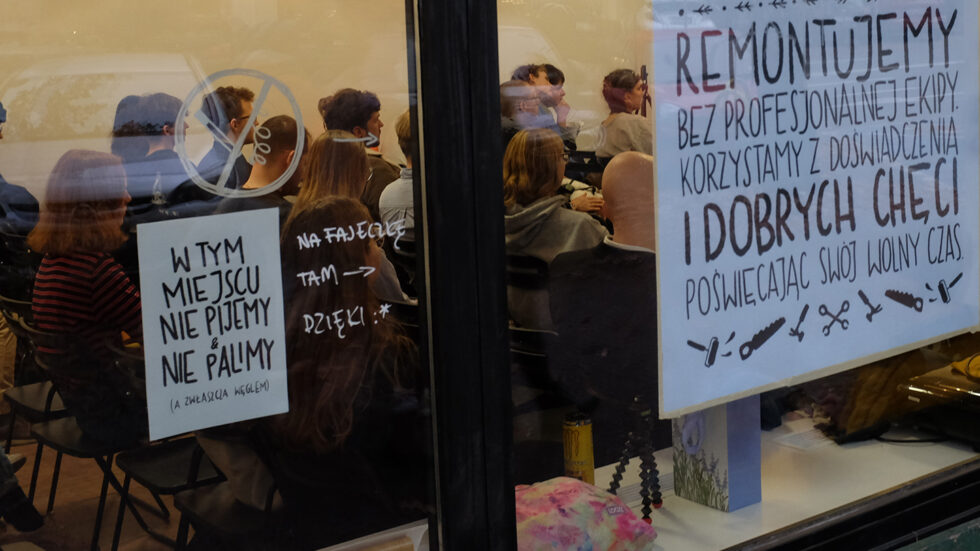 W TYM
MIEJSCU
NIE PIJEMY
&
NIE PALIMY
(A ZWŁASZCZA WĘGLEM)
NA FAJECZKĘ
TAM →
DZIĘKI :*
REMONTUJEMY
BEZ PROFESJONALNEJ EKIPY.
KORZYSTAMY Z DOŚWIADCZENIA
I DOBRYCH CHĘCI
POŚWIĘCAJĄC SWÓJ WOLNY CZAS.